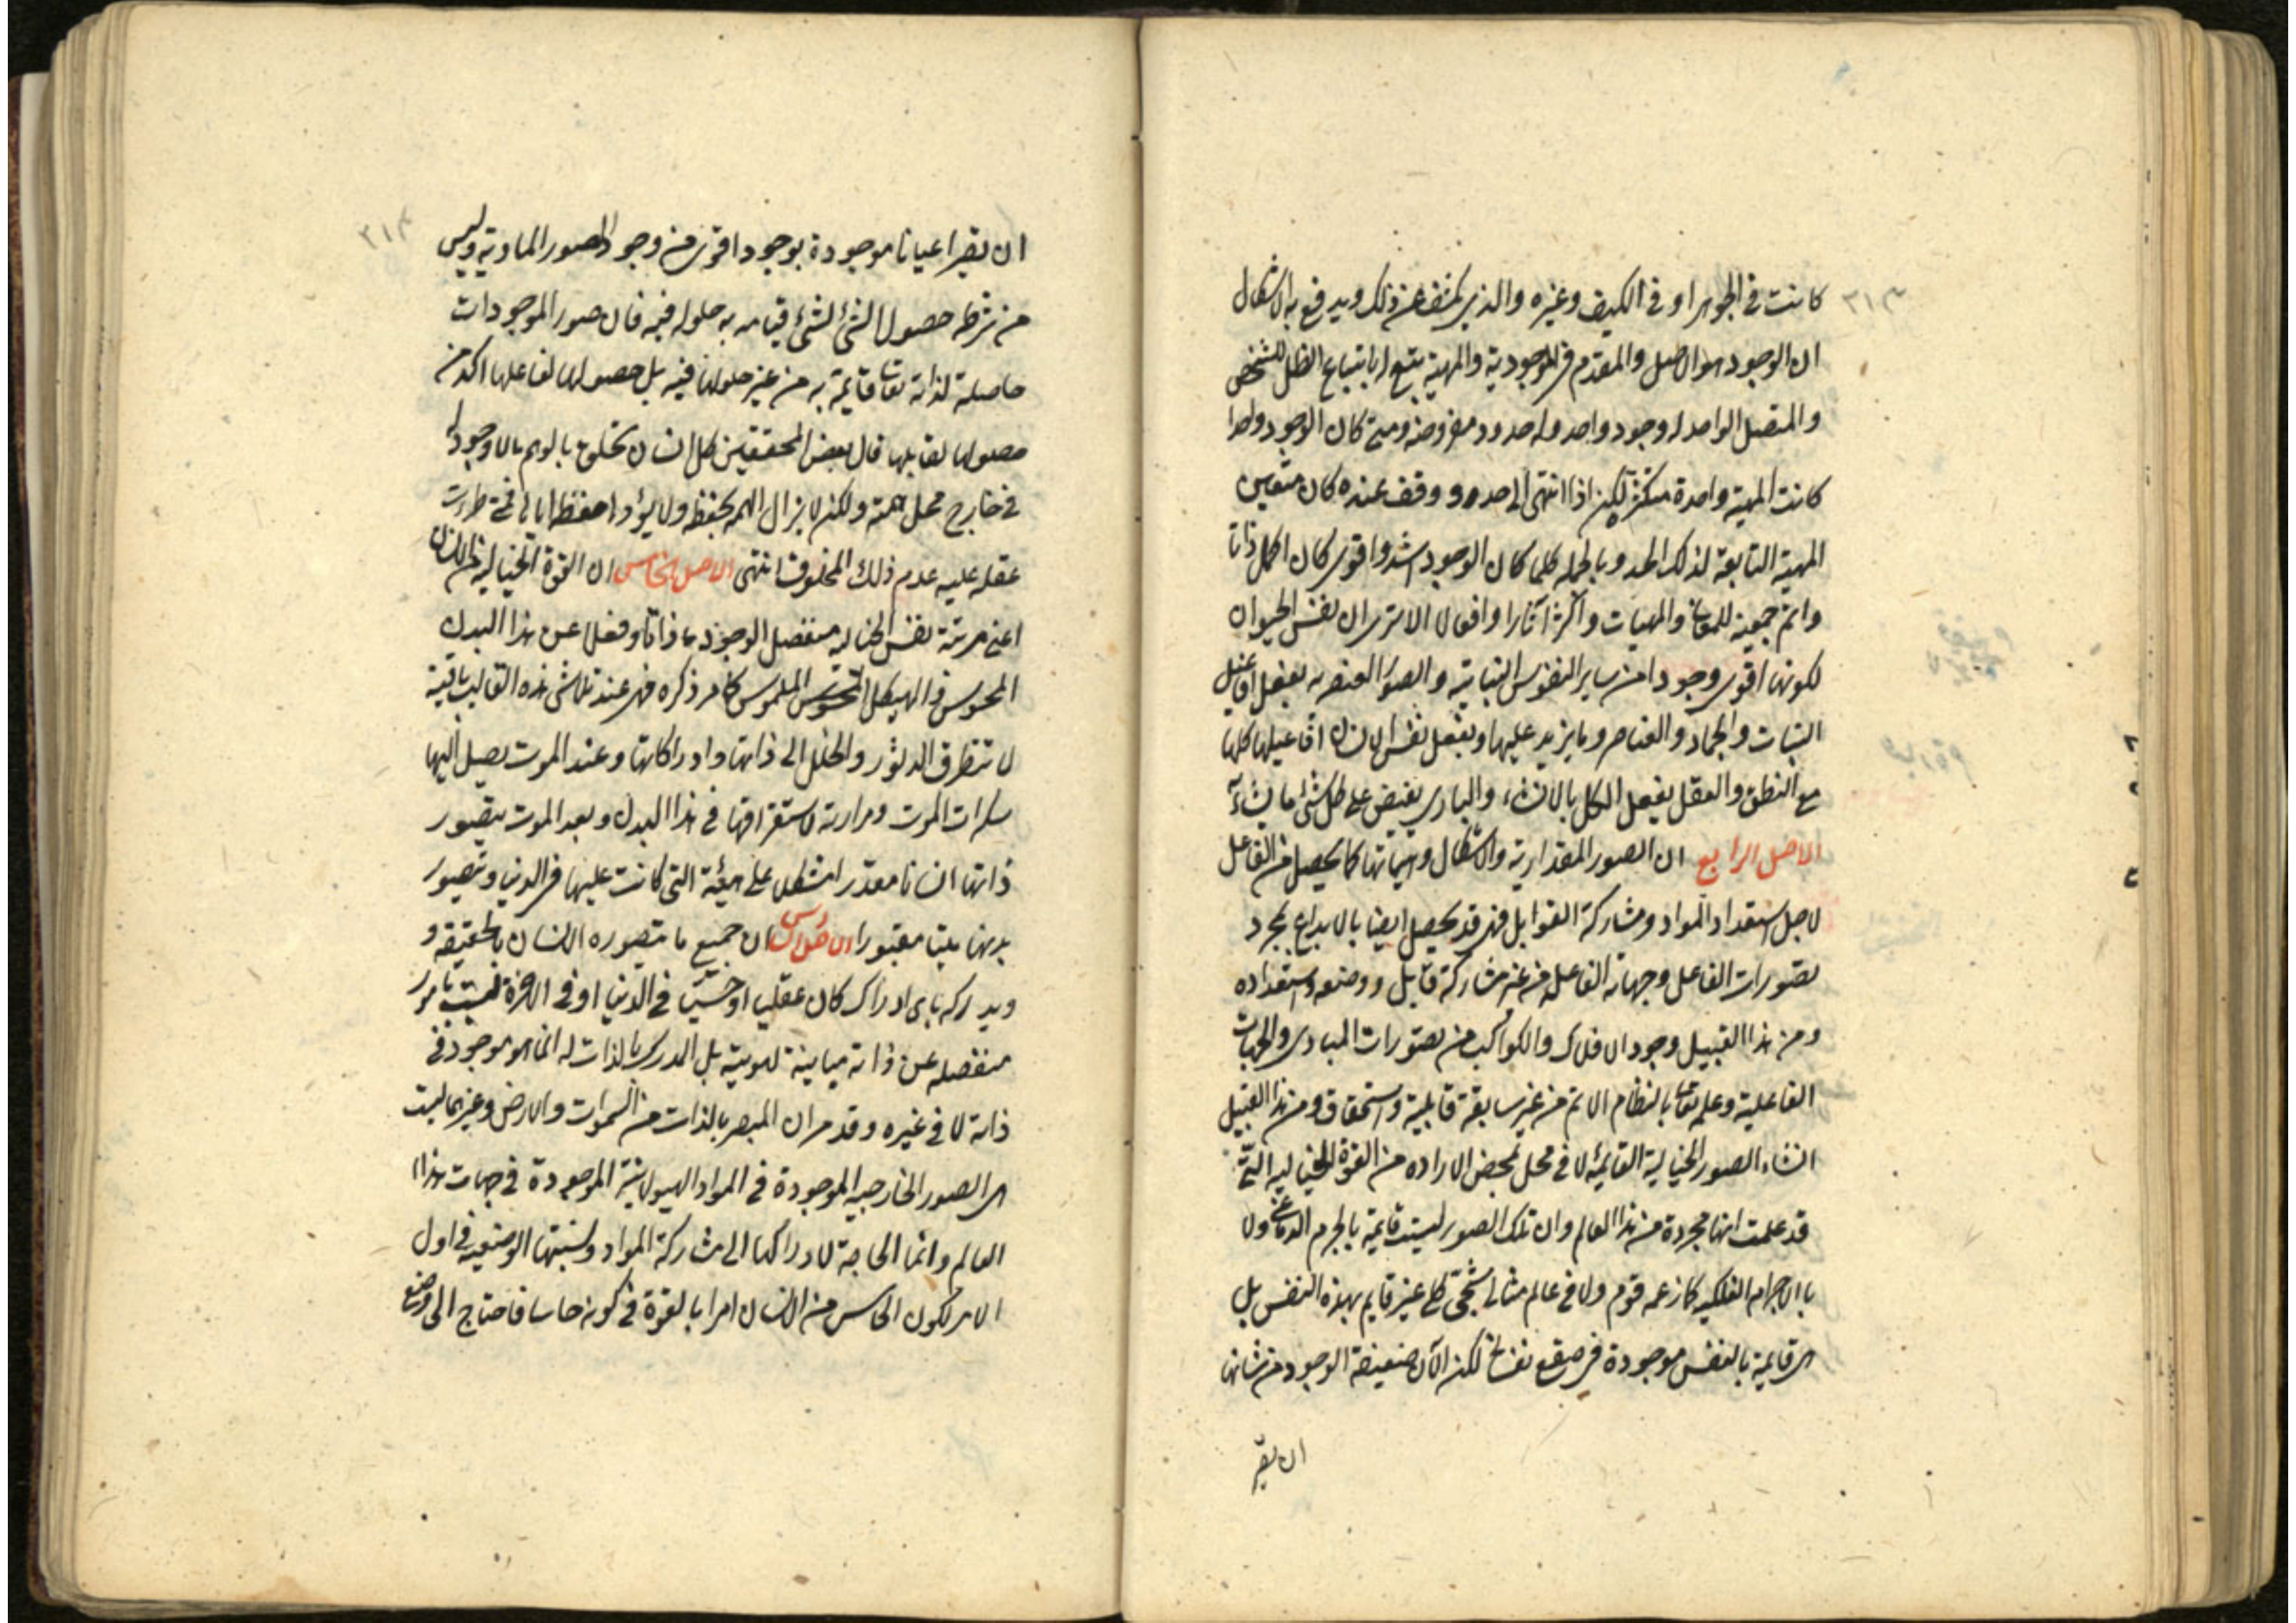 كانت في الجوهر او في الكيف وغيره والذي يكشف عن ذلك ويدفع به الاشكال
ان الوجود هو الاصل والمقدم في الموجودية والمهية يتبع له اتباع الظل للشخص
والمتصل الواحد له وجود واحد وله حدود مفروضة ومتى كان الوجود واحدا
كانت المهية واحدة متكثرة لكن اذا انتهى الى حد ووقف عنده كان متعين
المهية التابعة لذلك الحد وبالجملة كلما كان الوجود اشد واقوى كان اكمل ذاتا
واتم جمعية للمعاني والمهيات واكثر آثارا وافعالا الا ترى ان نفس الحيوان
لكونها اقوى وجودا من ساير النفوس النباتية والصور العنصرية يفعل افاعيل
النبات والجماد والعناصر وما يزيد عليها ويفعل نفس الانسان افاعيلها كلها
مع النطق والعقل يفعل الكل بالانشاء والباري يفيض على كل شئ ما يشاء
الاصل الرابع ان الصور المقدارية والاشكال وهيئاتها كما يحصل من الفاعل
لاجل استعداد المواد ومشاركة القوابل فهي قد يحصل ايضا بالابداع بمجرد
تصورات الفاعل وجهاته الفاعلية من غير مشاركة قابل ووضعه واستعداده
ومن هذا القبيل وجود الافلاك والكواكب من تصورات المبادي والجهات
الفاعلية وعلمه تعالى بالنظام الاتم من غير سابقة قابلية واستحقاق ومن هذا القبيل
انشاء الصور الخيالية القائمة لا في محل بمحض الارادة من القوة الخيالية التي
قد علمت انها مجردة من هذا العالم وان تلك الصور ليست قايمة بالجرم الدماغي ولا
بالاجرام الفلكية كما زعمه قوم ولا في عالم مثالي شبحي غير قايم بهذه النفس بل
هي قايمة بالنفس موجودة في صقع نفساني لكن الآن ضعيفة الوجود من شانها
ان يصير
٣١٣
ان يصير اعيانا موجودة بوجود اقوى من وجود الصور المادية وليس
من شرط حصول الشئ لشئ قيامه به حلوله فيه فان صور الموجودات
حاصلة لذاته تعالى قايمة به من غير حلولها فيه بل حصولها لفاعلها اكد من
حصولها لقابلها قال بعض المحققين كل انسان يخلق بالوهم ما لا وجود له
في خارج محل همته ولكن لا يزال الهمة يحفظه ولا يؤدها حفظها اياه فمتى طرءت
غفلة عليه عدم ذلك المخلوق انتهى الاصل الخامس ان القوة الخيالية من الانسان
اعني مرتبة نفس الخيالية منفصل الوجود ذاتا وفعلا عن هذا البدن
المحسوس والهيكل المحسوس الملموس كما مر ذكره فهي عند تلاشي هذه القالب باقية
لا تتطرق الدثور والخلل الى ذاتها وادراكاتها وعند الموت يصل اليها
سكرات الموت ومرارته لاستغراقها في هذا البدن وبعد الموت يتصور
ذاتها انسانا مقدرا مشكلا على هيئة التي كانت عليها في الدنيا ويتصور
بدنها ميتا مقبورا الاصل السادس ان جميع ما يتصوره الانسان بالحقيقة و
ويدركه باى ادراك كان عقليا او حسيا في الدنيا او في الاخرة ليست بامور
منفصلة عن ذاته مباينة لهويته بل المدرك بالذات له انما هو موجود في
ذاته لا في غيره وقد مر ان المبصر بالذات من السموات والارض وغيرهما ليست
هي الصور الخارجية الموجودة في المواد الهيولانية الموجودة في جهات هذا
العالم وانما الحاجة لادراكها الى مشاركة المواد ونسبتها الوضعية في اول
الامر لكون الحاس من الانسان امرا بالقوة في كونه حاسا فاحتاج الى وضع